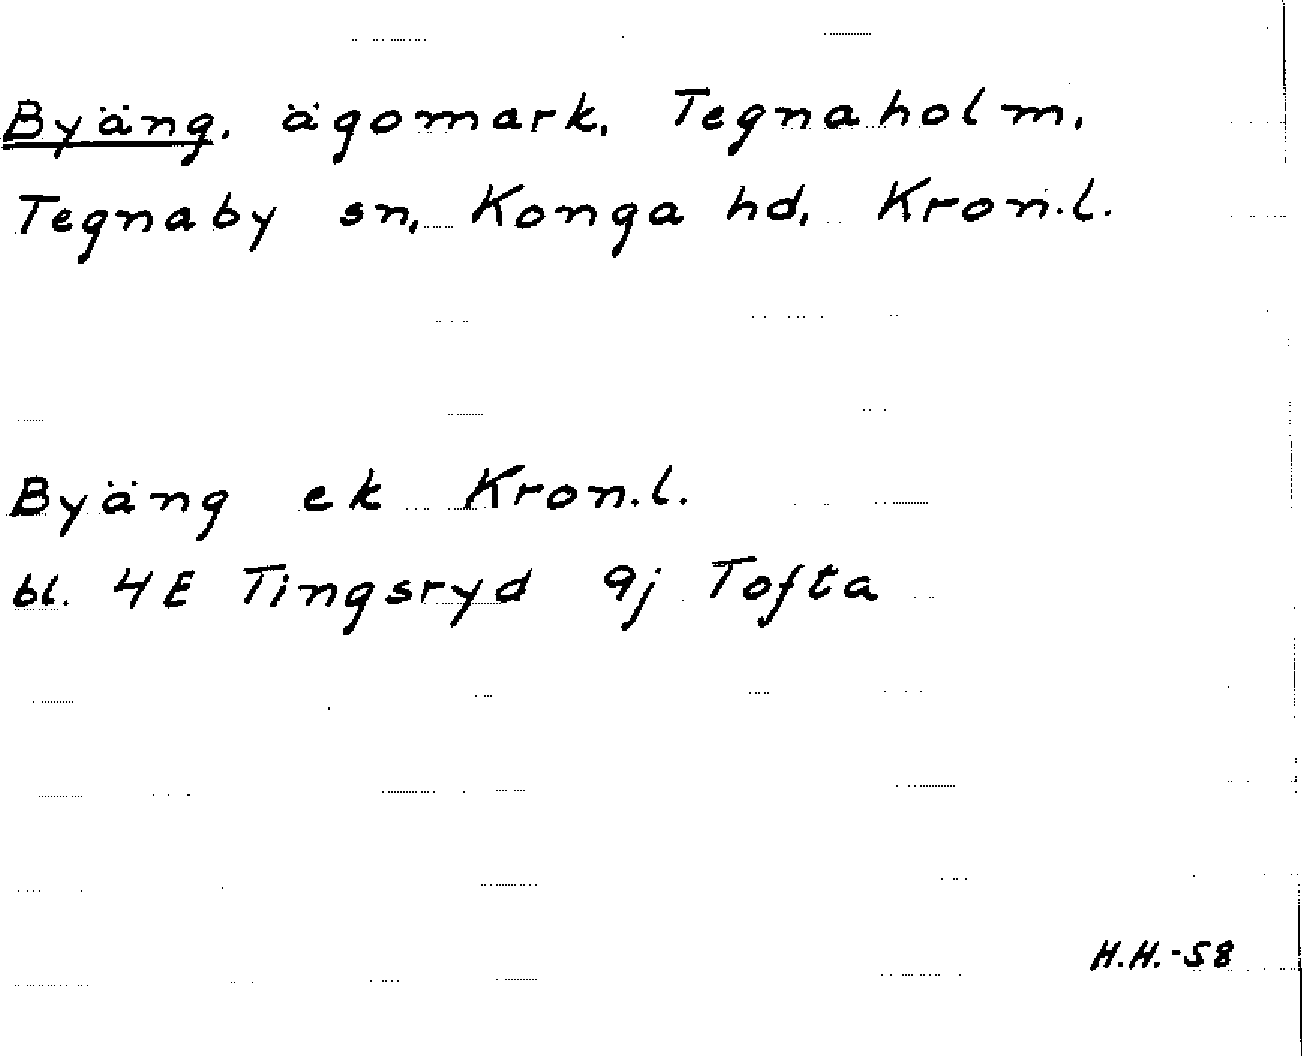 Byäng, ägomark, Tegnaholm,
Tegnaby sn, Konga hd, Kron.l.
Byäng ek Kron.l.
bl. 4E Tingsryd 9j Tofta
H.H.-58